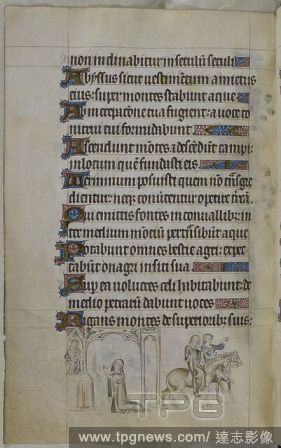 non inclinabitur in seculū seculi
Abyssus sicut uestimentum amictus
eius: super montes stabunt aque
Ab increpatione tua fugient: a uoce to
nitrui tui formidabunt
Ascendunt mōtes: ⁊ descēdūt campi
in locum quē fundasti eis
Terminum posuisti quem nō trāsgre
dientur: neq; conuertentur operire terrā
Qui emittis fontes in conuallib;: in
ter medium mōtiū pertrāsibūt aque
Potabunt omnes bestie agri: expec
tabūt onagri in siti sua
Sup ea uolucres celi habitabunt: de
medio petrarū dabunt uoces
Rigans montes de superiorib; suis:
TPG
www.tpgnews.com/達志影像